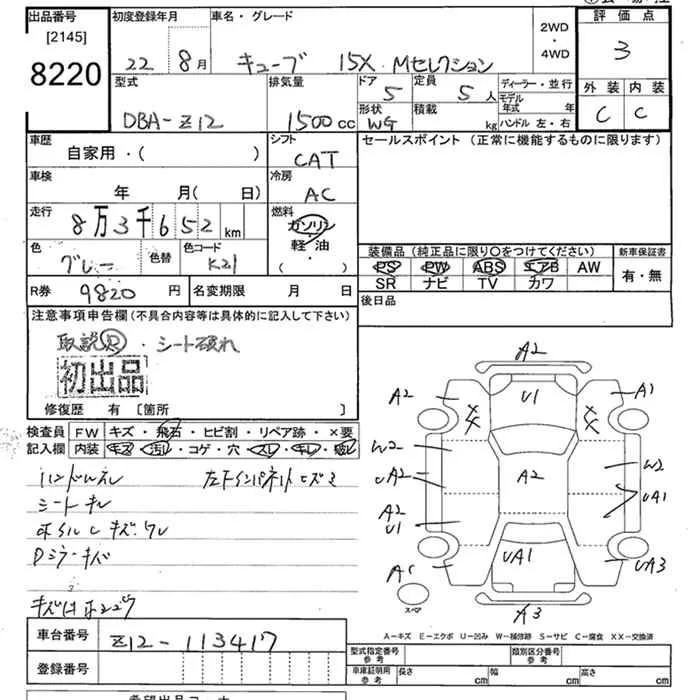 出品番号 初度登録年月 車名・グレード 2WD・4WD 評価点
[2145]
8220 22 8月 キューブ 15X Mセレクション 3
型式 排気量 ドア 定員 ディーラー・並行 外装 内装
DBA-Z12 1500cc 5 5人 モデル年式 年 C C
形状 積載 ハンドル 左・右
WG kg
車歴 シフト セールスポイント (正常に機能するものに限ります)
自家用・( ) CAT
車検 冷房
年 月( 日) AC
走行 燃料
8万3千652km ガソリン
軽油
( )
色 色替 色コード 装備品 (純正品に限り○をつけてください) 新車保証書
グレー K21 PS PW ABS エアB AW 有・無
SR ナビ TV カワ
R券 9820円 名変期限 月 日 後日品
注意事項申告欄(不具合内容等は具体的に記入して下さい)
取説R・シート破れ
初出品
修復歴 有 [箇所 ]
検査員 FW キズ・飛石・ヒビ割・リペア跡・×要
記入欄 内装 キズ・汚レ・コゲ・穴・スレ・キレ・破レ
ハンドルスレ
シートキレ
キズ
A2
A2 U1 A1
XX XX
W2 W2
UA2 A2 UA1
A2
U1
A1 UA1 UA3
スペア
A3
A-キズ E-エクボ U-凹み W-補修跡 S-サビ C-腐食 XX-交換済
車台番号 Z12-113417
型式指定番号 参考 類別区分番号 参考
登録番号 車庫証明用 参考 長さ cm 幅 cm 高さ cm
希望出品コーナー